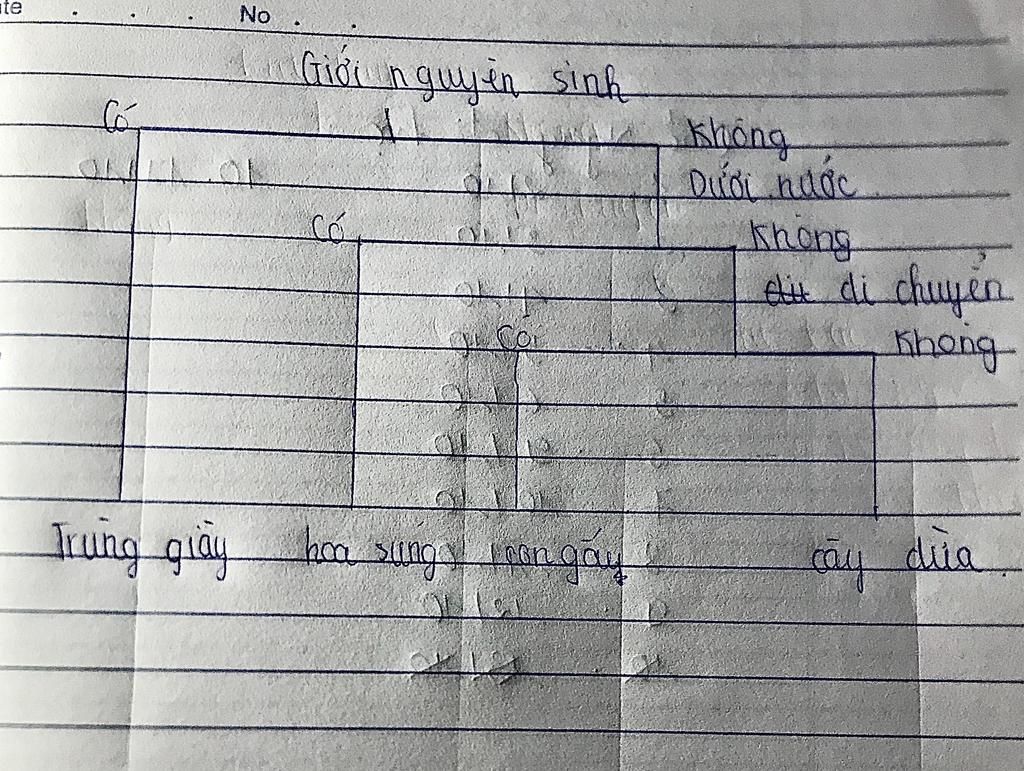 te . . . . No . .
Giới nguyên sinh
Có Không
Dưới nước
Có Không
di chuyển
Có Không
Trùng giày hoa súng con gấu cây dừa